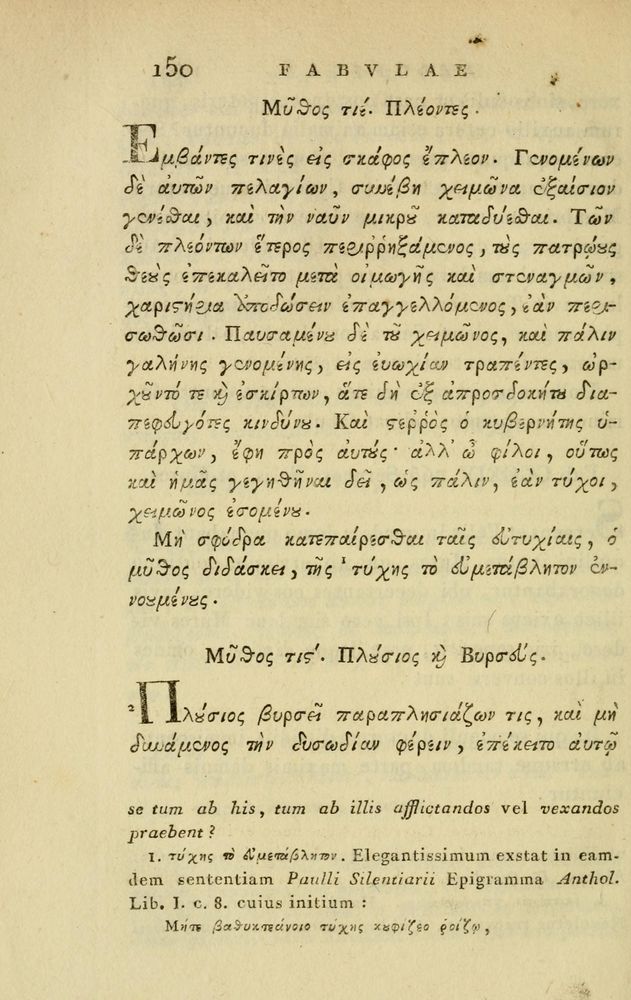 150 FABVLAE
Μῦθος τιέ. Πλέοντες.
Εμβάντες τινὲς εἰς σκάφος ἔπλεον. Γενομένων
δὲ αὐτῶν πελαγίων, συνέβη χειμῶνα ἐξαίσιον
γενέσθαι, καὶ τὴν ναῦν μικροῦ καταδύεσθαι. Τῶν
δὲ πλεόντων ἕτερος περιρρηξάμενος, τοὺς πατρῴους
θεοὺς ἐπεκαλεῖτο μετὰ οἰμωγῆς καὶ στεναγμῶν,
χαριστήρια ἀποδώσειν ἐπαγγελλόμενος, ἐὰν περι-
σωθῶσι. Παυσαμένου δὲ τοῦ χειμῶνος, καὶ πάλιν
γαλήνης γενομένης, εἰς εὐωχίαν τραπέντες, ὠρ-
χοῦντό τε καὶ ἐσκίρτων, ἅτε δὴ ἐξ ἀπροσδοκήτου δια-
πεφευγότες κινδύνου. Καὶ στερρὸς ὁ κυβερνήτης ὑ-
πάρχων, ἔφη πρὸς αὐτούς· ἀλλ᾽ ὦ φίλοι, οὕτως
καὶ ἡμᾶς γεγηθέναι δεῖ, ὡς πάλιν, ἐὰν τύχοι,
χειμῶνος ἐσομένου.
Μὴ σφόδρα κατεπαίρεσθαι ταῖς εὐτυχίαις, ὁ
μῦθος διδάσκει, τῆς ¹ τύχης τὸ εὐμετάβλητον ἐν-
νοουμένους.
Μῦθος τιϛ΄. Πλούσιος καὶ Βυρσεύς.
² Πλούσιος βυρσεῖ παραπλησιάζων τις, καὶ μὴ
δυνάμενος τὴν δυσωδίαν φέρειν, ἐπέκειτο αὐτῷ
se tum ab his, tum ab illis afflictandos vel vexandos
praebent?
1. τύχης τὸ εὐμετάβλητον. Elegantissimum exstat in eam-
dem sententiam Paulli Silentiarii Epigramma Anthol.
Lib. I. c. 8. cuius initium:
Μήτε βαθυκτεάνοιο τύχης κουφίζεο ῥοίζῳ,